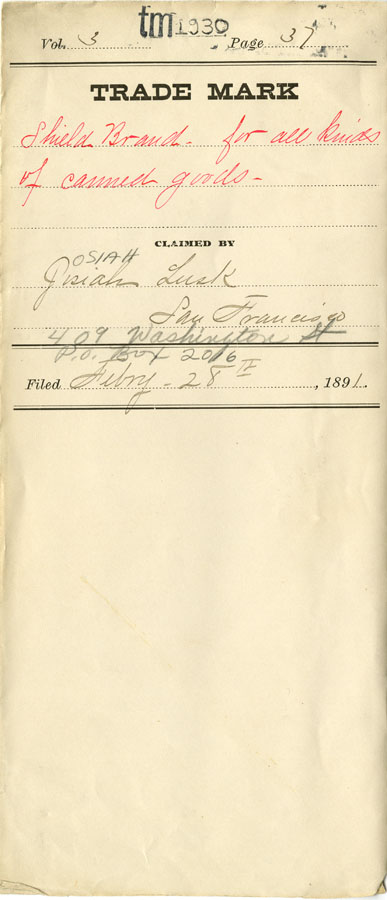 tm 1930
Vol. 3 Page 37
TRADE MARK
Shield Brand - for all kinds
of canned goods -
CLAIMED BY
OSIAH
Josiah Lusk
San Francisco
409 Washington St
P.O. Box 2016
Filed Feby - 28 , 1891.